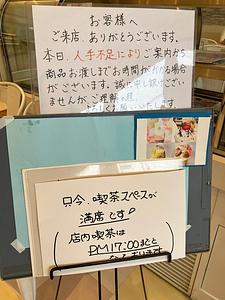 お客様へ
ご来店、ありがとうございます。
本日、人手不足によりご案内から
商品お渡しまでお時間がかかる場合
がございます。誠に申し訳ござい
ませんが、ご理解の程、
お願いいたします
只今、喫茶スペースが
満席です
店内喫茶は
PM17:00までと
なっております